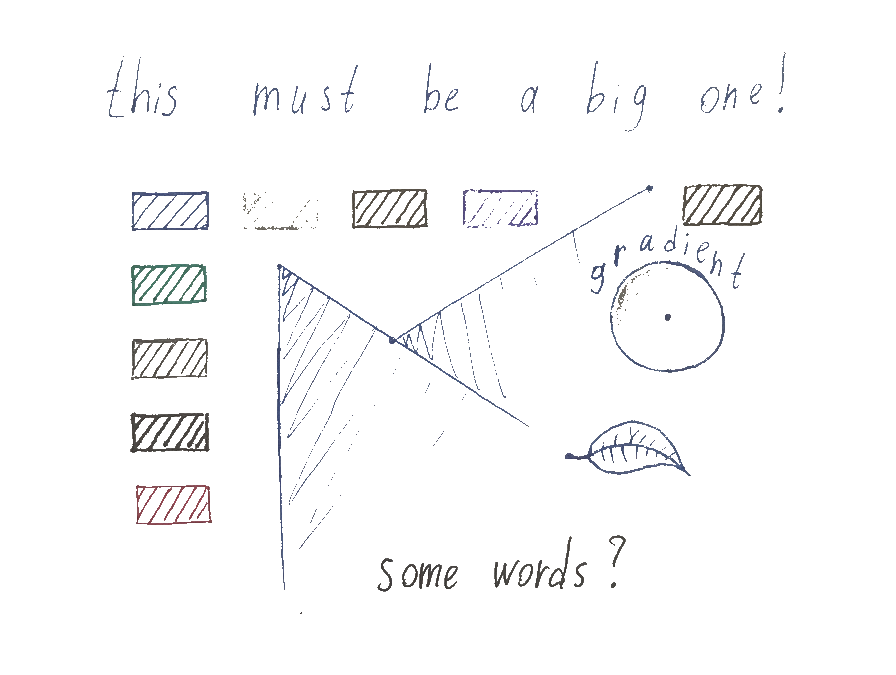 this must be a big one!
gradient
some words?